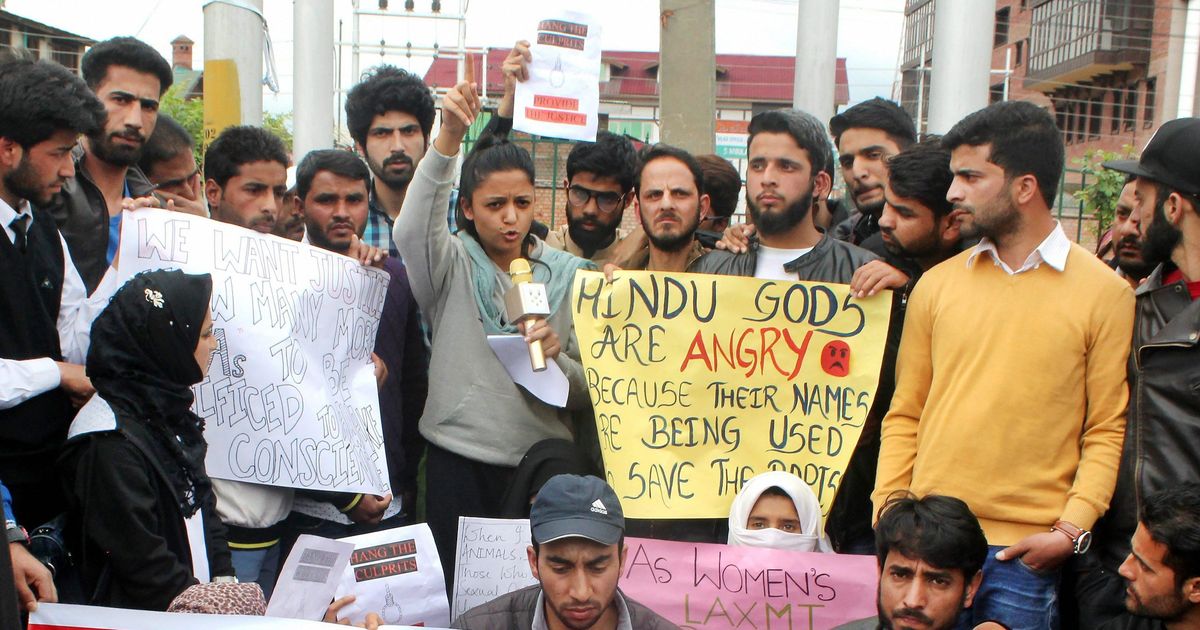 HANG THE
CULPRITS
PROVIDE
THE JUSTICE
WE WANT JUSTICE
MANY MORE
TO BE
TO
CONSCIENCE
HINDU GODS
ARE ANGRY
BECAUSE THEIR NAMES
BEING USED
SAVE THE
HANG THE
CULPRITS
When
ANIMALS,
Those Who
Sexual
adidas
AS WOMEN'S
LAXMI